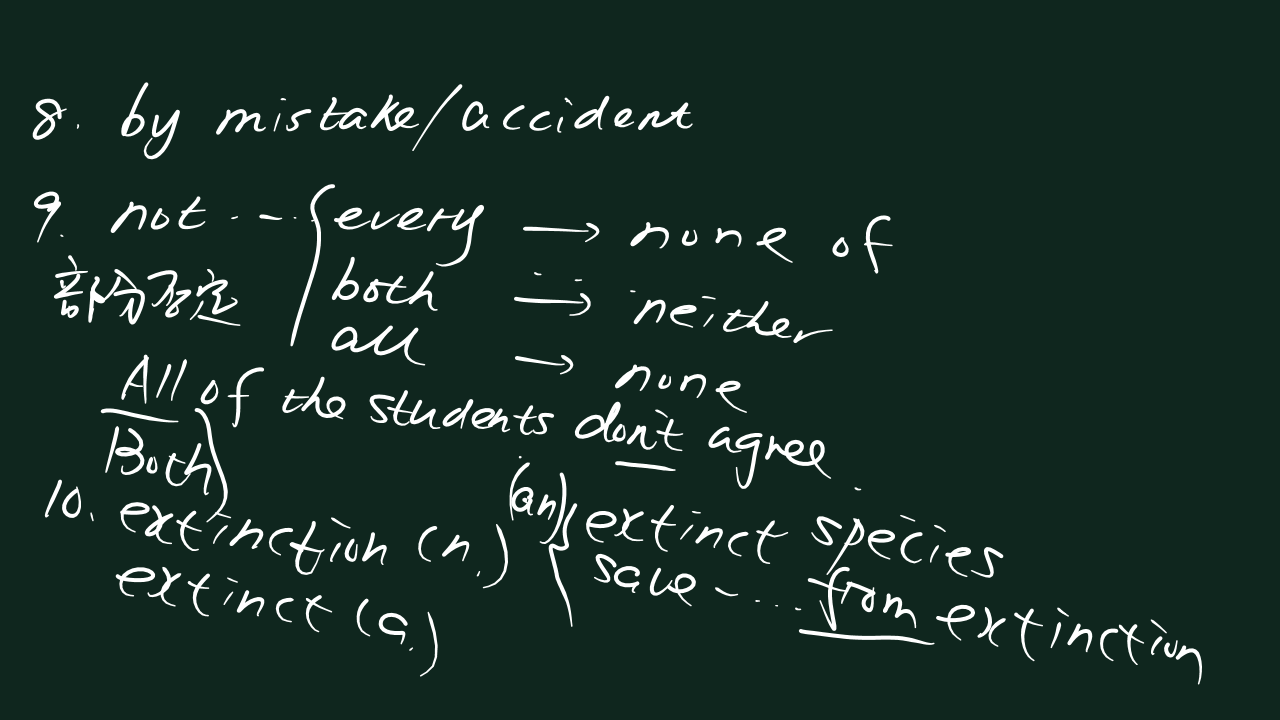 8. by mistake/accident
9. not ... { every → none of
部分否定 both → neither
all → none
All of the students don't agree.
Both
10. extinction (n.) (an) { extinct species
extinct (a.) save ... from extinction